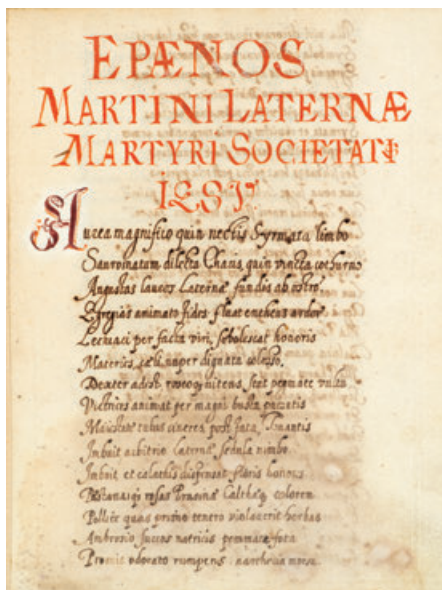 EPÆNOS
MARTINI LATERNÆ
MARTYRI SOCIETATIS
IESV
Aurea magnifico quin nectis Syrmata limbo
Sauromatum dilecta Charis, quin vincta cothurno
Augustas laudes Laternæ fundis ab ostro.
Egregias animato fides: fluat entheus ardor
per facta viri, sobolescat honoris
Materies, cæli nuper dignata colosso.
Dexter adest roseoq, nitens, stat gemmate vultu
Victrices animat per magni busta
Maiestate rubus cinerea post fata, Tonantis
Imbuit arbitrio Laternæ, sedula nimbo.
Imbuit et calathis dispensat floris honores
rosas Calthæq, colorem
Pollice quas primo tenero violaverit herbas
Ambrosio succos nutricis gemmaca fota
odorato rumpens